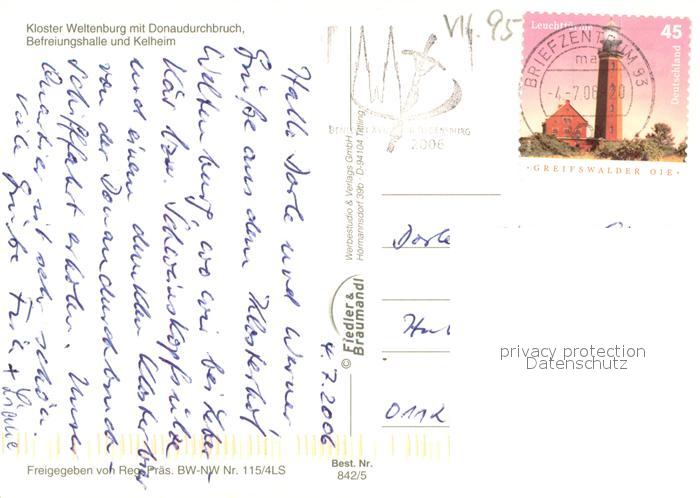 Kloster Weltenburg mit Donaudurchbruch,
Befreiungshalle und Kelheim
VII. 95
Leuchttürme
45
Deutschland
GREIFSWALDER OIE
BRIEFZENTRUM 93
ma
-4.-7.06-20
2006
4.7.2006
Hallo Dorle und Werner
Grüße aus dem Klosterhof
Weltenburg wo wir bei Leber-
käs bzw. Schweinskopfsülze
und einem dunklen Klosterbier
von der Donaudurchbruch-
Schiffahrt erholen. Unser
Quartier ist sehr schön
viele Grüße
Werbestudio & Verlags GmbH
Hörmannsdorf 39b · D-94104 Tittling
© Fiedler &
Braumandl
Dorle
011
privacy protection
Datenschutz
Freigegeben von Reg. Präs. BW-NW Nr. 115/4LS
Best. Nr.
842/5